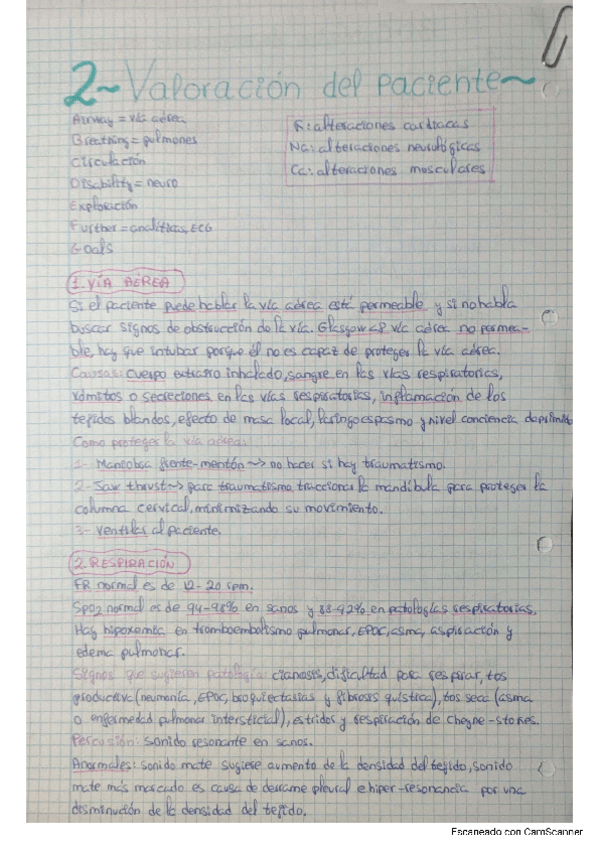 2~ Valoración del paciente ~
Airway = vía aérea
Breathing = pulmones
Circulación
Disability = neuro
Exploración
Further = analíticas, ECG
Goals
K: alteraciones cardiacas
Na: alteraciones neurológicas
Ca: alteraciones musculares
1. VÍA AÉREA
Si el paciente puede hablar la vía aérea está permeable y si no habla
buscar signos de obstrucción de la vía. Glasgow <8 vía aérea no permea-
ble, hay que intubar porque él no es capaz de proteger la vía aérea.
Causas: cuerpo extraño inhalado, sangre en las vías respiratorias,
vómitos o secreciones en las vías respiratorias, inflamación de los
tejidos blandos, efecto de masa local, laringoespasmo y nivel conciencia deprimido
Como proteger la vía aérea:
1- Maniobra frente-mentón ~> no hacer si hay traumatismo.
2- Jaw thrust ~> para traumatismo, traccionar la mandíbula para proteger la
columna cervical, minimizando su movimiento.
3- Ventilar al paciente.
2. RESPIRACIÓN
FR normal es de 12-20 rpm.
SpO2 normal es de 94-98% en sanos y 88-92% en patologías respiratorias.
Hay hipoxemia en tromboembolismo pulmonar, EPOC, asma, aspiración y
edema pulmonar.
Signos que sugieren patología: cianosis, dificultad para respirar, tos
productiva (neumonía, EPOC, bronquiectasias y fibrosis quística), tos seca (asma
o enfermedad pulmonar intersticial), estridos y respiración de Cheyne-stokes.
Percusión: sonido resonante en sanos.
Anormales: sonido mate sugiere aumento de la densidad del tejido, sonido
mate más marcado es causa de derrame pleural e hiper-resonancia por una
disminución de la densidad del tejido.
Escaneado con CamScanner